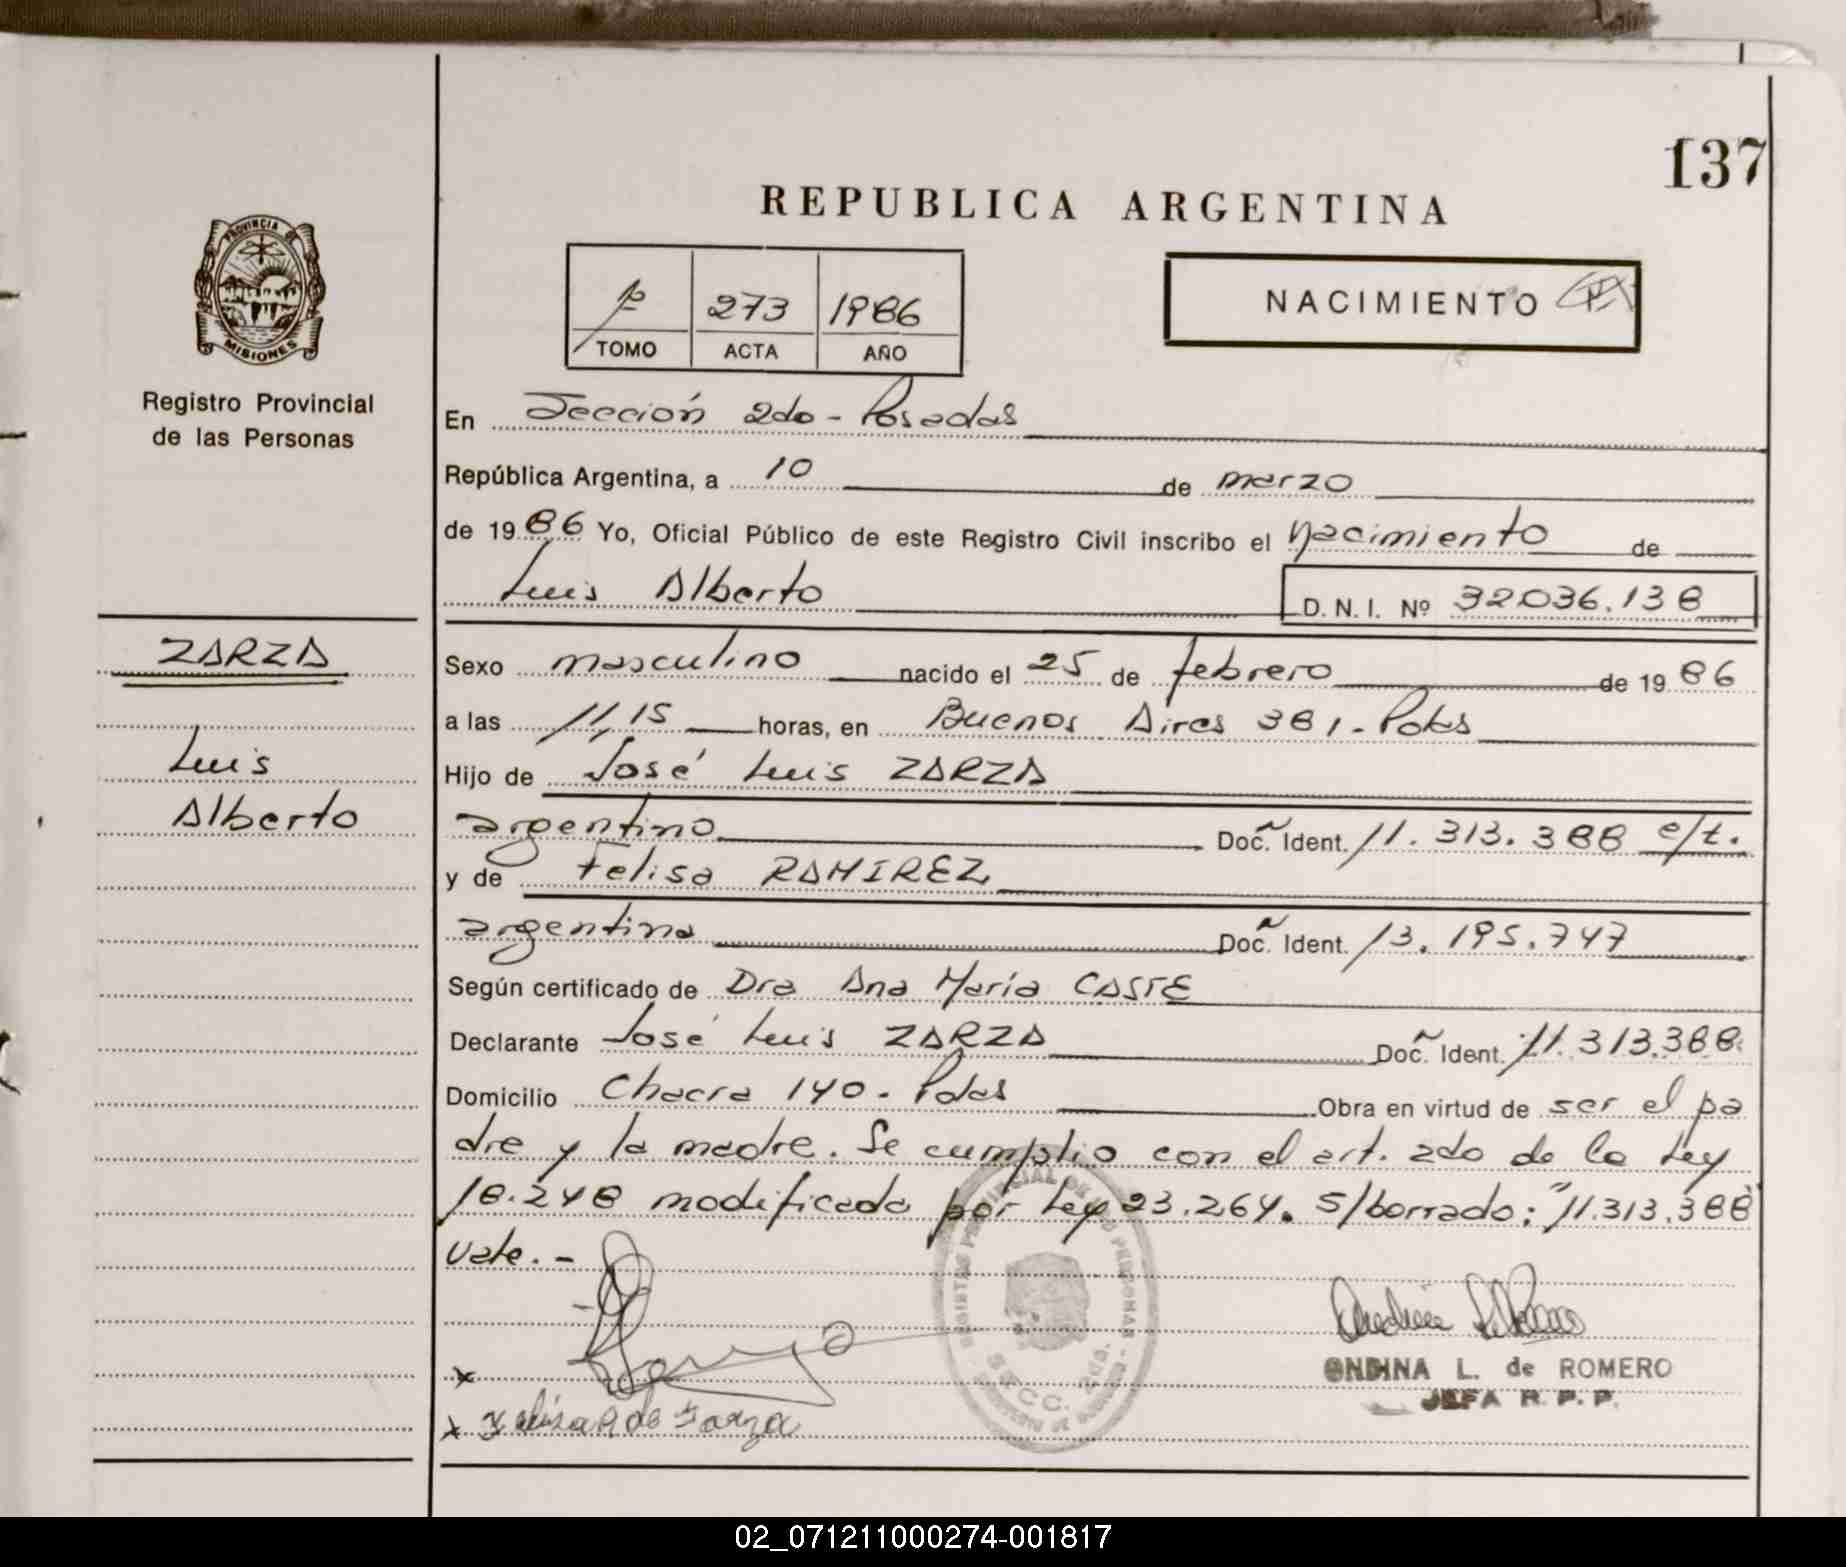 137
REPUBLICA ARGENTINA
PROVINCIA DE
MISIONES
Registro Provincial
de las Personas
273 1986
TOMO ACTA AÑO
NACIMIENTO
En Sección 2da - Posadas
República Argentina, a 10 de marzo
de 1986 Yo, Oficial Público de este Registro Civil inscribo el nacimiento de
Luis Alberto D. N. I. Nº 32036.138
ZARZA
Luis
Alberto
Sexo masculino nacido el 25 de febrero de 1986
a las 11,15 horas, en Buenos Aires 381 - Pdas
Hijo de José Luis ZARZA
argentino Doc. Ident. 11.313.388 e/t.
y de Felisa RAMIREZ
argentina Doc. Ident. 13.195.747
Según certificado de Dra Ana María CASTE
Declarante José Luis ZARZA Doc. Ident. 11.313.388
Domicilio Chacra 140 - Pdas Obra en virtud de ser el pa
dre y la madre. Se cumplio con el art. 2do de la Ley
18.248 modificada por Ley 23.264. S/borrado: "11.313.388"
Vale. -
x
x Felisa R de Zarza
SECC. 2da.
ONDINA L. de ROMERO
JEFA R. P. P.
02_071211000274-001817